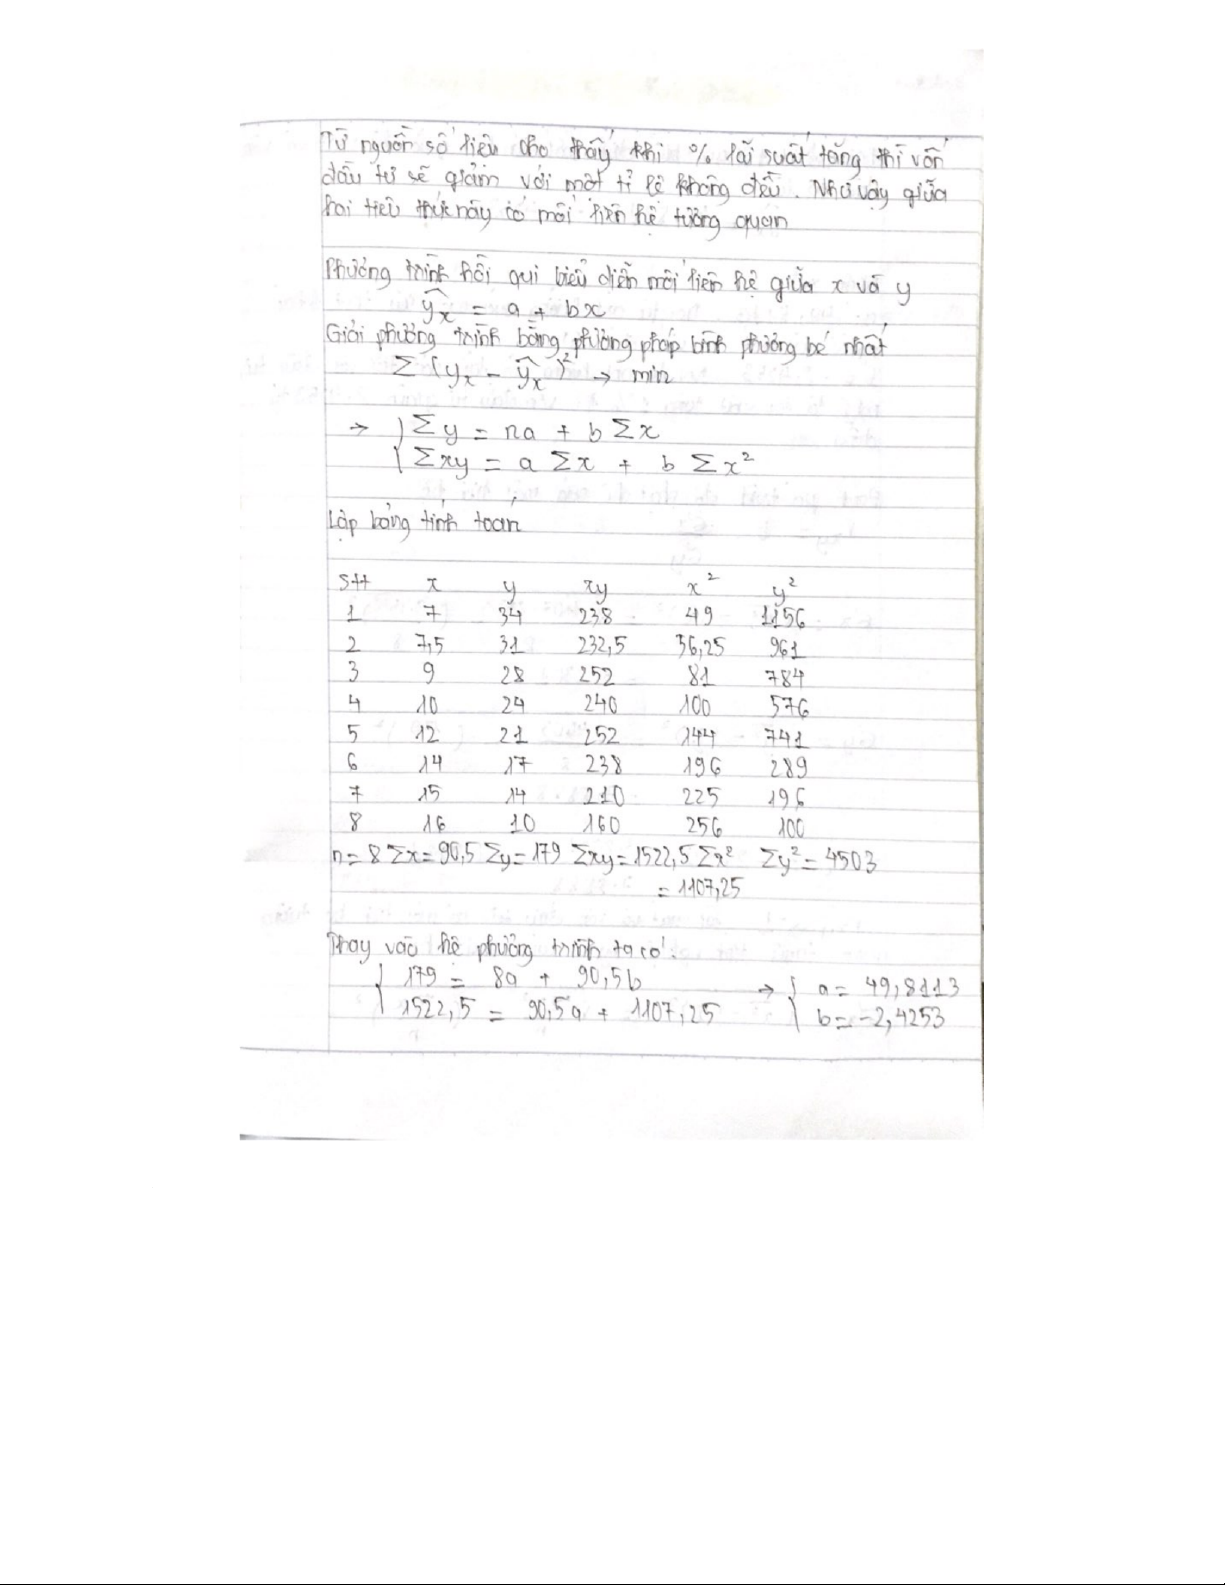 Từ nguồn số liệu cho thấy khi % lãi suất tăng thì vốn
đầu tư sẽ giảm với một tỉ lệ không đều. Như vậy giữa
hai tiêu thức này có mối liên hệ tương quan
Phương trình hồi qui biểu diễn mối liên hệ giữa x và y
ŷx = a + bx
Giải phương trình bằng phương pháp bình phương bé nhất
Σ (yx - ŷx)² → min
→ { Σy = na + bΣx
{ Σxy = a Σx + b Σx²
Lập bảng tính toán
Stt x y xy x² y²
1 7 34 238 49 1156
2 7,5 31 232,5 36,25 961
3 9 28 252 81 784
4 10 24 240 100 576
5 12 21 252 144 741
6 14 17 238 196 289
7 15 14 210 225 196
8 16 10 160 256 100
n = 8 Σx = 90,5 Σy = 179 Σxy = 1522,5 Σx² Σy² = 4503
= 1107,25
Thay vào hệ phương trình ta có
{ 179 = 8a + 90,5b → { a = 49,8113
{ 1522,5 = 90,5a + 1107,25 { b = -2,4253